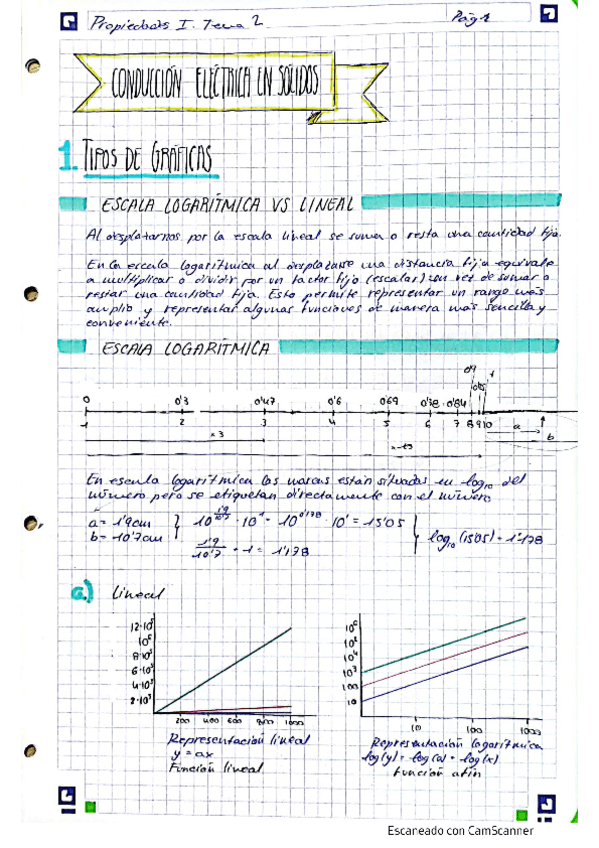 Propiedades I. Tema 2
Pág 1
CONDUCCIÓN ELÉCTRICA EN SÓLIDOS
1. TIPOS DE GRÁFICAS
ESCALA LOGARÍTMICA VS LINEAL
Al desplazarnos por la escala lineal se suma o resta una cantidad fija.
En la escala logarítmica al desplazarse una distancia fija equivale
a multiplicar o dividir por un factor fijo (escalar) en vez de sumar o
restar una cantidad fija. Esto permite representar un rango más
amplio y representar algunas funciones de manera más sencilla y
conveniente.
ESCALA LOGARÍTMICA
0'9
0'95 1
0 0'3 0'47 0'6 0'69 0'78 0'84
1 2 3 4 5 6 7 8 9 10 a
b
x3
En escala logarítmica las marcas están situadas en log10 del
número pero se etiquetan directamente con el número
a = 1'9cm
b = 10'7cm
10^1'9/10'7 · 10^1 = 10^0'178 · 10^1 = 15'05
1'9/10'7 + 1 = 1'178
log10 (15'05) = 1'178
a) Lineal
12·10^5
10^6
8·10^5
6·10^5
4·10^5
2·10^5
200 400 600 800 1000
Representación lineal
y = ax
Función lineal
10^6
10^5
10^4
10^3
100
10
10 100 1000
Representación logarítmica
log(y) = log(a) + log(x)
función afín
Escaneado con CamScanner